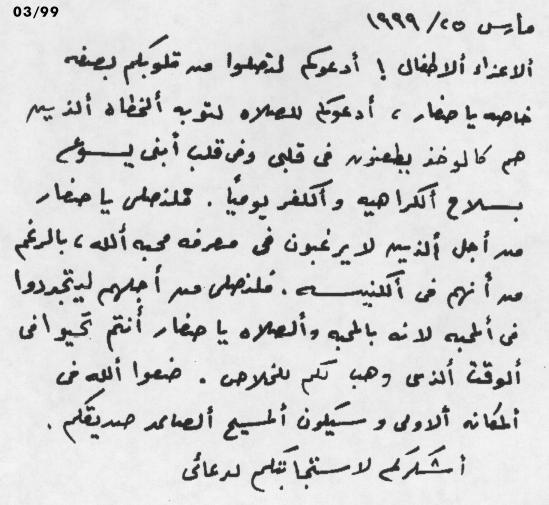 03/99
مارس ٢٥/ ١٩٩٩
ألاعزاء ألاطفال ! أدعوكم لتصلوا من قلوبكم بصفه
خاصه يا صغار ، أدعوكم للصلاه لتوبه ألخطاه ألذين
هم كالوخذ يطعنون فى قلبى وفى قلب أبنى يسوع
بسلاح ألكراهيه وألكفر يوميًا . فلنصلى يا صغار
من أجل ألذين لا يرغبون فى معرفه محبه ألله ، بالرغم
من أنهم فى ألكنيسه . فلنصلى من أجلهم ليتجددوا
فى ألمحبه لانه بالمحبه وألصلاه يا صغار أنتم تحيوا فى
ألوقت ألذى وهب لكم للخلاص . ضعوا ألله فى
ألمكانه ألاولى وسيكون ألمسيح ألصاعد صديقكم .
أشكركم لاستجابتكم لدعائى